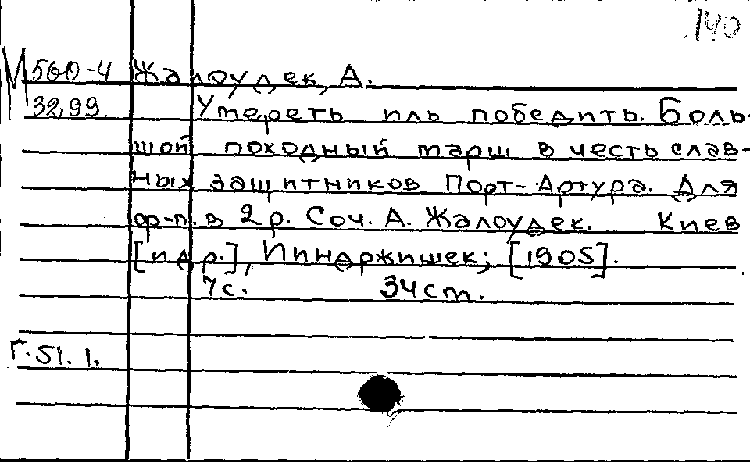 140
М 560-4 Жалоудек, А.
32,99 Умереть иль победить. Боль-
шой походный марш в честь слав-
ных защитников Порт-Артура. Для
ф-п. в 2 р. Соч. А. Жалоудек. Киев
[и др.], Индржишек; [1905].
7с. 34 см.
Г. 51. 1.